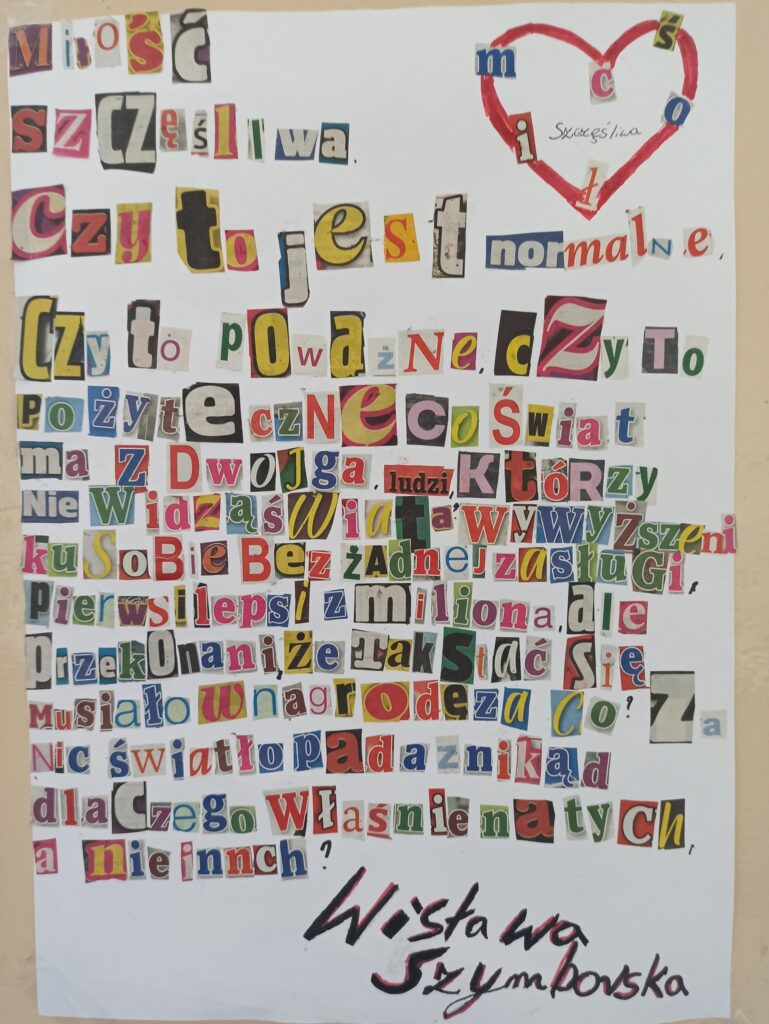 Miłość
szczęśliwa.
miłość
Szczęśliwa
Czy to jest normalne,
Czy to poważne, czy to
pożyteczne co świat
ma z Dwojga ludzi, którzy
Nie widzą świata, wywyższeni
ku SoBie Bez żadnej zasługi,
pierwsi lepsi z miliona, ale
przekonani, że tak stać się
Musiało w nagrodę za co? Za
Nic światło pada znikąd
dlaczego właśnie na tych,
a nie innch?
Wisława
Szymborska